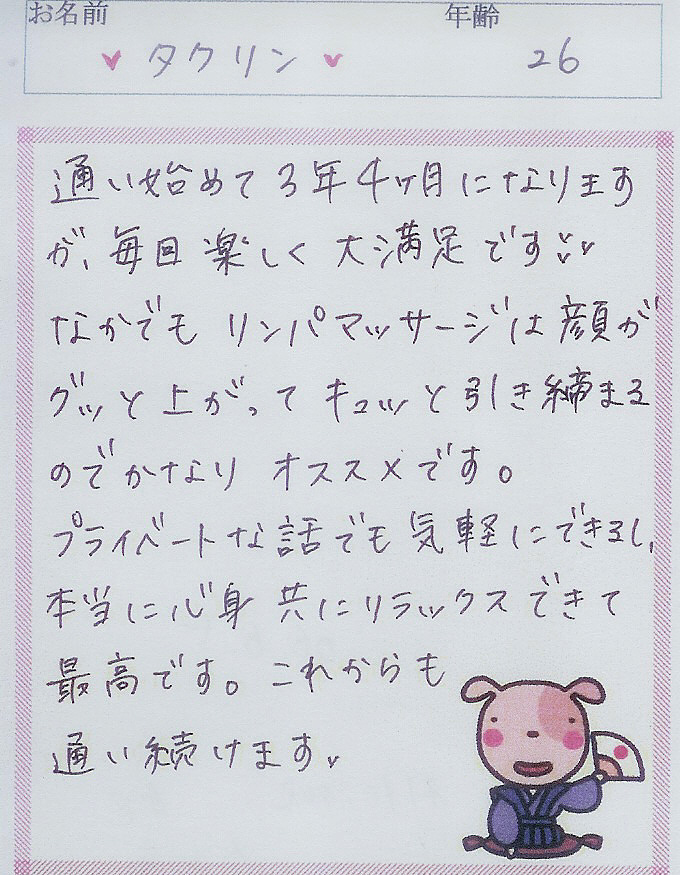 お名前 年齢
♥ タクリン ♥ 26
通い始めて3年4ヶ月になります
が、毎回楽しく大満足です♡♡
なかでもリンパマッサージは顔が
グッと上がってキュッと引き締まる
のでかなりオススメです。
プライベートな話でも気軽にできるし、
本当に心身共にリラックスできて
最高です。これからも
通い続けます♡